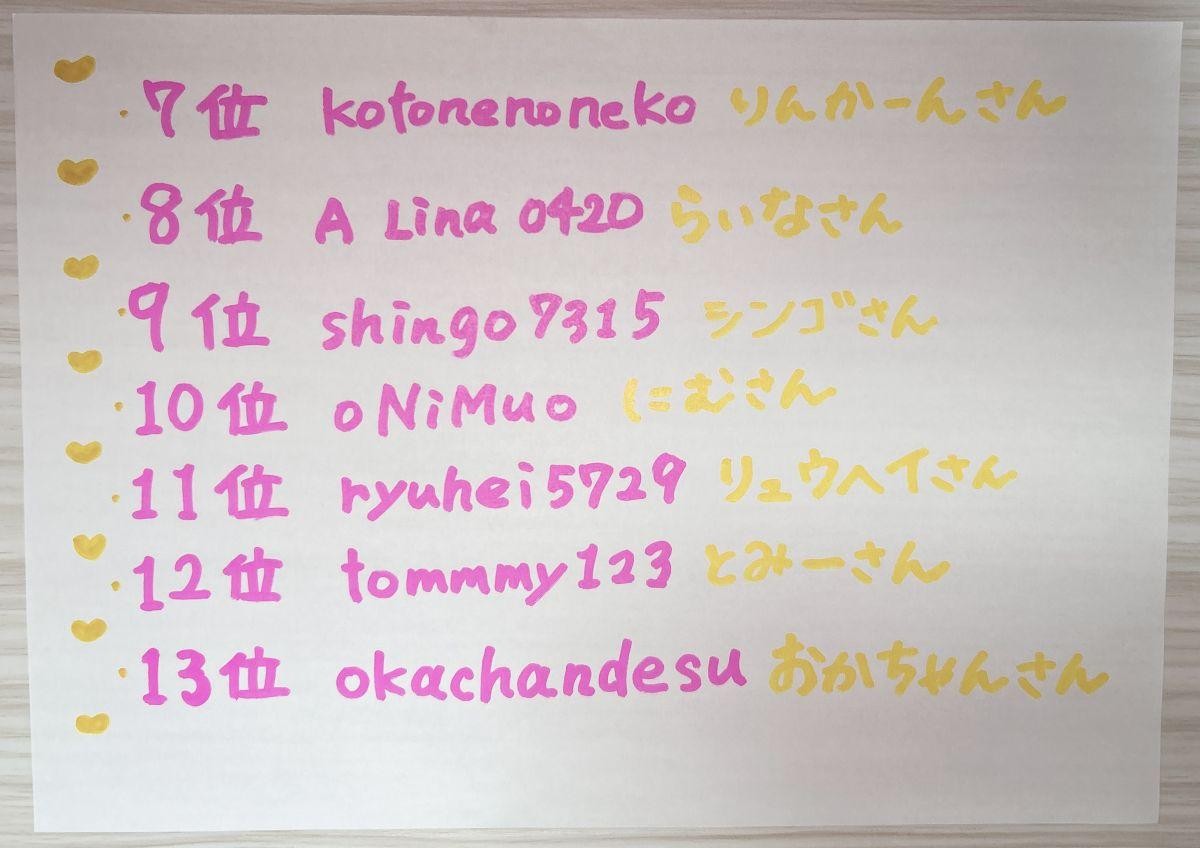 7位 kotonenoneko りんかーんさん
8位 A Lina 0420 らぃなさん
9位 shingo7315 シンゴさん
10位 oNiMuo にむさん
11位 ryuhei5729 リュウヘイさん
12位 tommmy123 とみーさん
13位 okachandesu おかちゃんさん